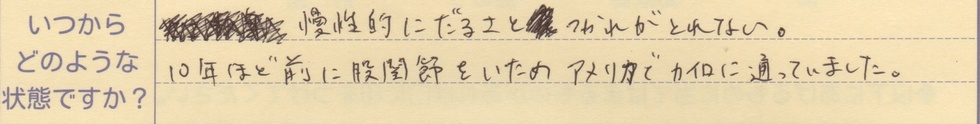 いつから
どのような
状態ですか？
慢性的にだるさと つかれがとれない。
10年ほど前に股関節をいため アメリカで カイロに通っていました。